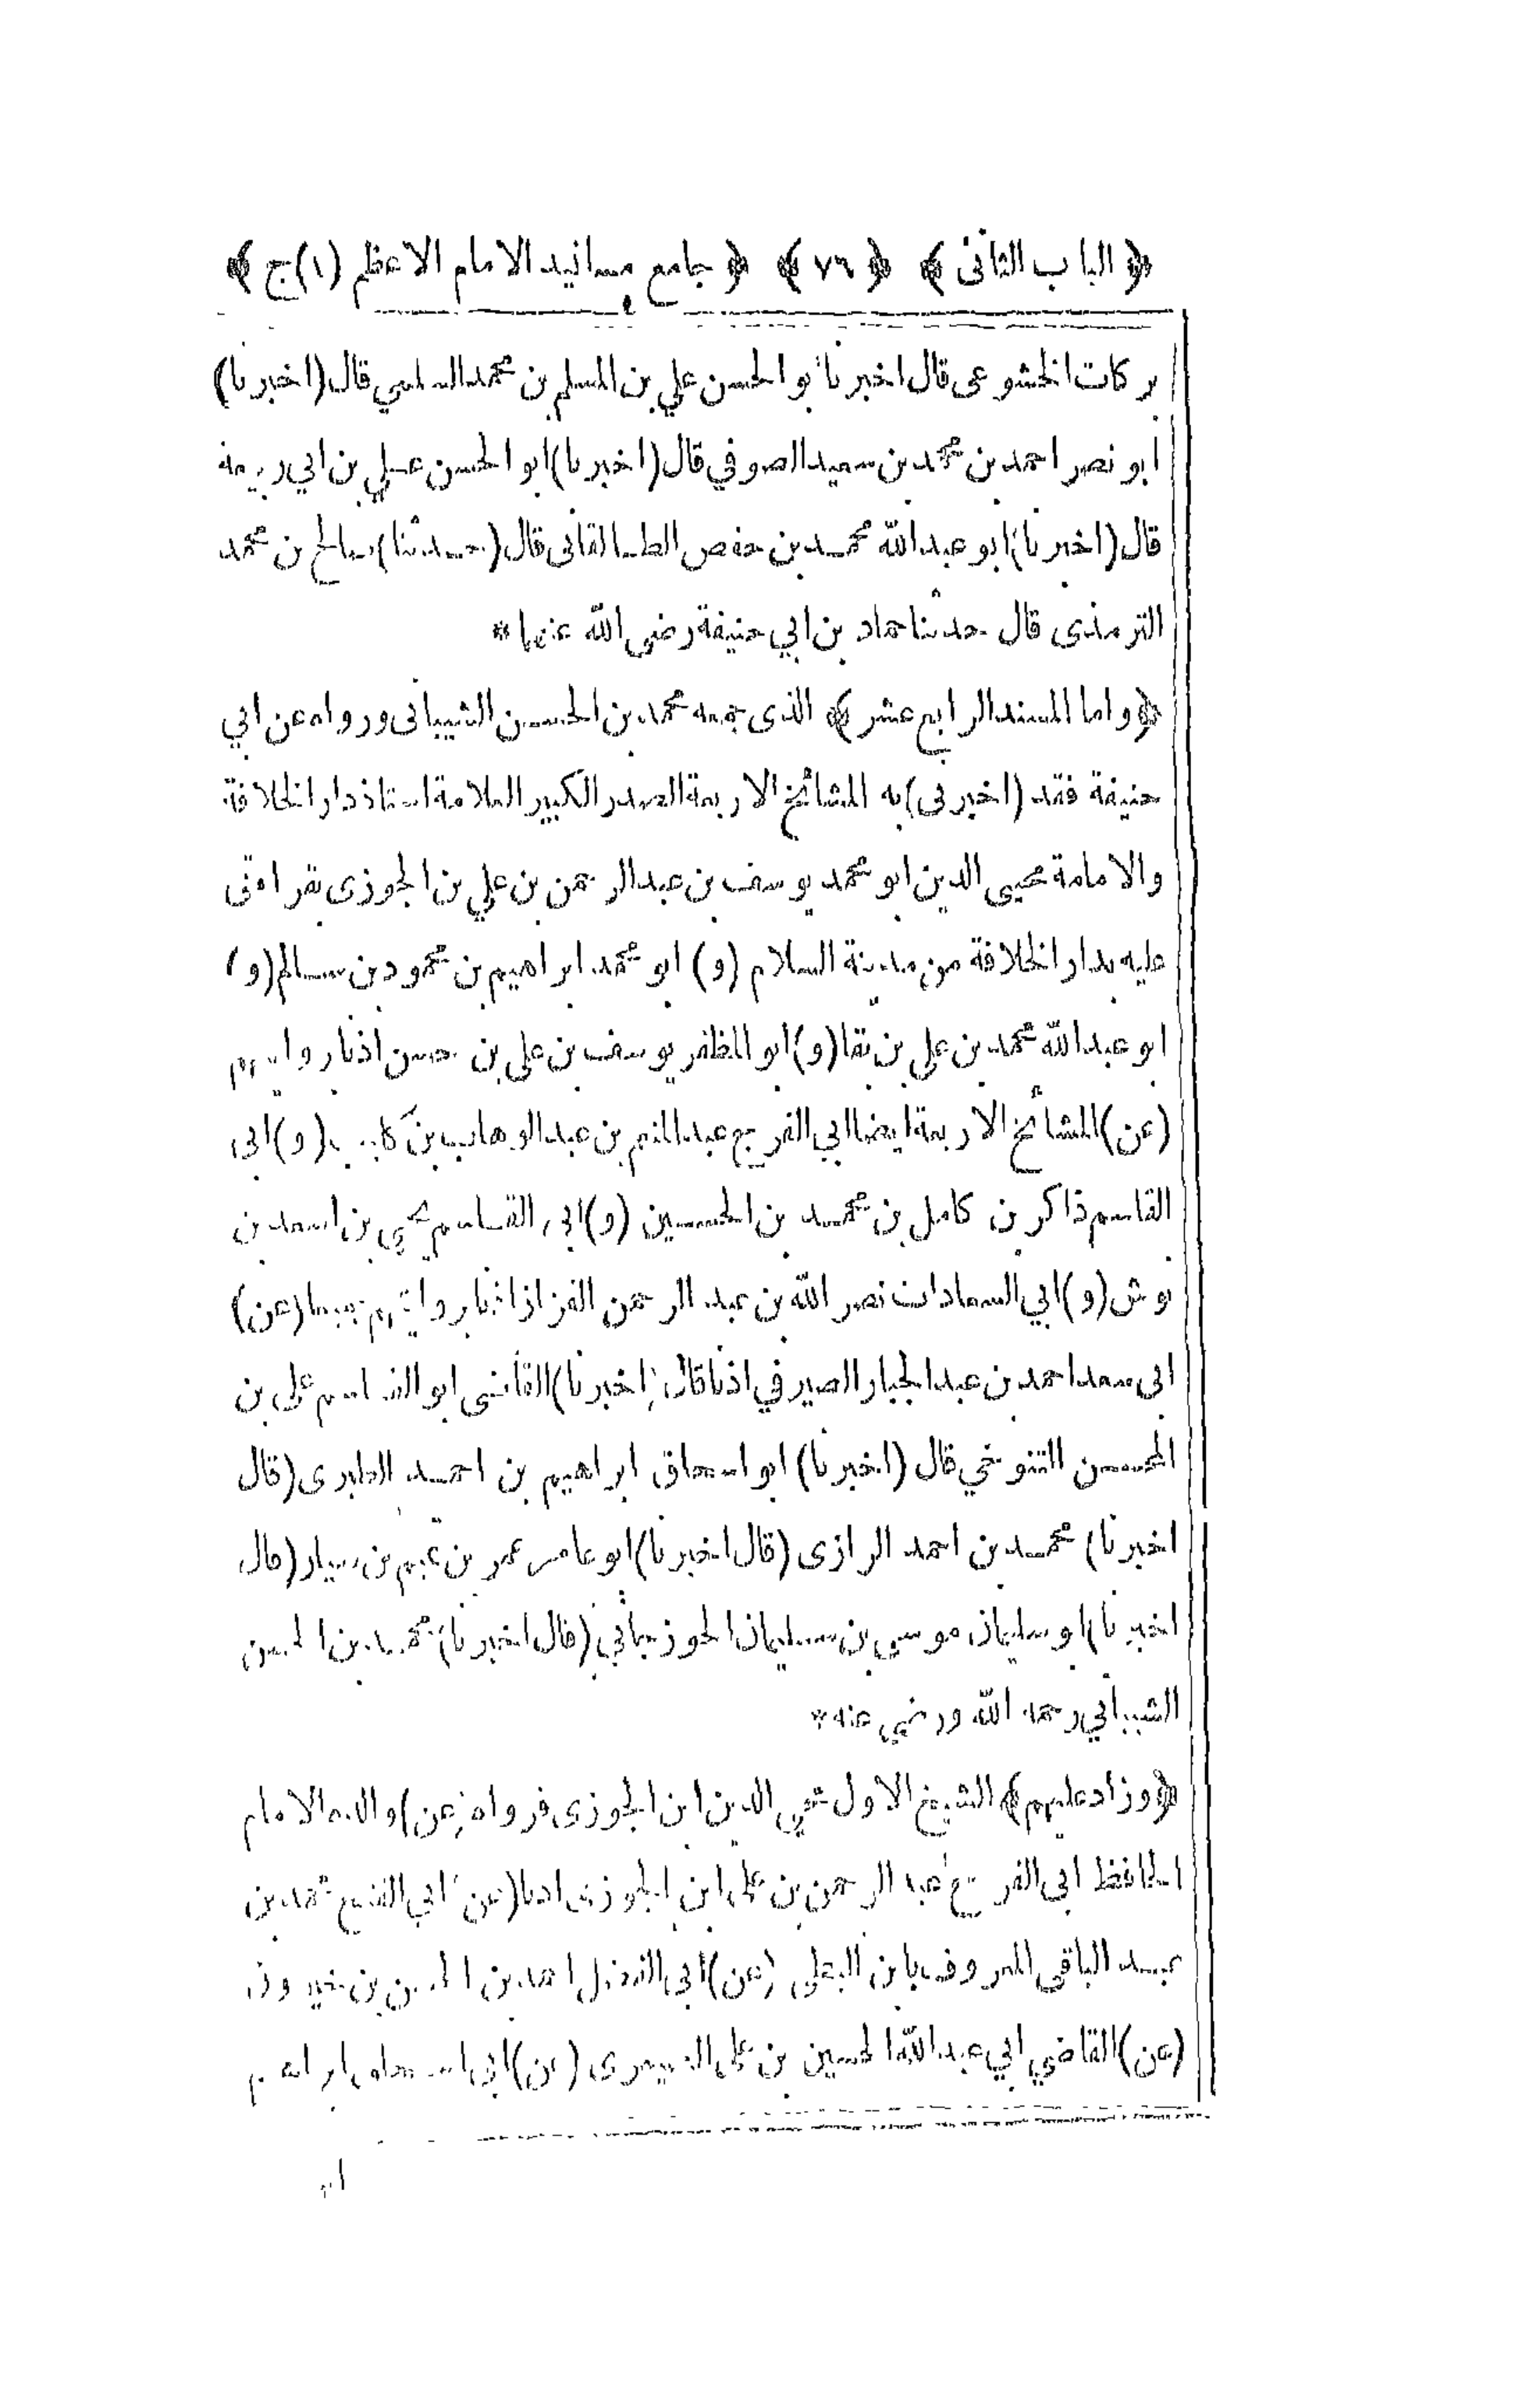 ﴿ الباب الثانى ﴾ ﴿ ٧٦ ﴾ ﴿ جامع مسانيد الامام الاعظم (١) ج ﴾
بركات الخشوعى قال اخبرنا ابو الحسن علي بن المسلم بن محمد السلمي قال (اخبرنا)
ابو نصر احمد بن محمد بن سعيد الصوفي قال (اخبرنا) ابو الحسن علي بن ابي ربيعة
قال (اخبرنا) ابو عبد الله محمد بن حفص الطالقانى قال (حدثنا) صالح بن محمد
الترمذى قال حدثنا حماد بن ابي حنيفة رضى الله عنهما *
﴿ واما المسند الرابع عشر ﴾ الذى جمعه محمد بن الحسن الشيبانى ورواه عن ابي
حنيفة فقد (اخبرنى) به المشائخ الاربعة الصدر الكبير العلامة استاذ دار الخلافة
والامامة محيى الدين ابو محمد يوسف بن عبد الرحمن بن علي بن الجوزى بقراءتى
عليه بدار الخلافة من مدينة السلام (و) ابو محمد ابراهيم بن محمود بن سالم (و)
ابو عبد الله محمد بن على بن بقا (و) ابو المظفر يوسف بن على بن حسن اذنا بروايتهم
(عن) المشائخ الاربعة ايضا ابي الفرج عبد المنعم بن عبد الوهاب بن كليب (و) ابى
القاسم ذاكر بن كامل بن محمد بن الحسين (و) ابى القاسم يحيي بن اسعد بن
نوش (و) ابي السعادات نصر الله بن عبد الرحمن القزاز اذنا بروايتهم جميعا (عن)
ابى سعد احمد بن عبد الجبار الصيرفي اذنا قال (اخبرنا) القاضى ابو القاسم على بن
المحسن التنوخي قال (اخبرنا) ابو اسحاق ابراهيم بن احمد الطبرى (قال
اخبرنا) محمد بن احمد الرازى (قال اخبرنا) ابو عامر عمر بن تميم بن سيار (قال
اخبرنا) ابو سليمان موسى بن سليمان الجوزجانى (قال اخبرنا) محمد بن الحسن
الشيبانى رحمه الله ورضي عنه *
﴿ وزاد عليهم ﴾ الشيخ الاول محيي الدين ابن الجوزى فرواه (عن) والده الامام
الحافظ ابى الفرج عبد الرحمن بن على ابن الجوزى اذنا (عن) ابي الفتح محمد بن
عبد الباقى المعروف بابن البطى (عن) ابى الفضل احمد بن الحسن بن خيرون
(عن) القاضي ابي عبد الله الحسين بن على الصيمرى (عن) ابى اسحاق ابراهيم